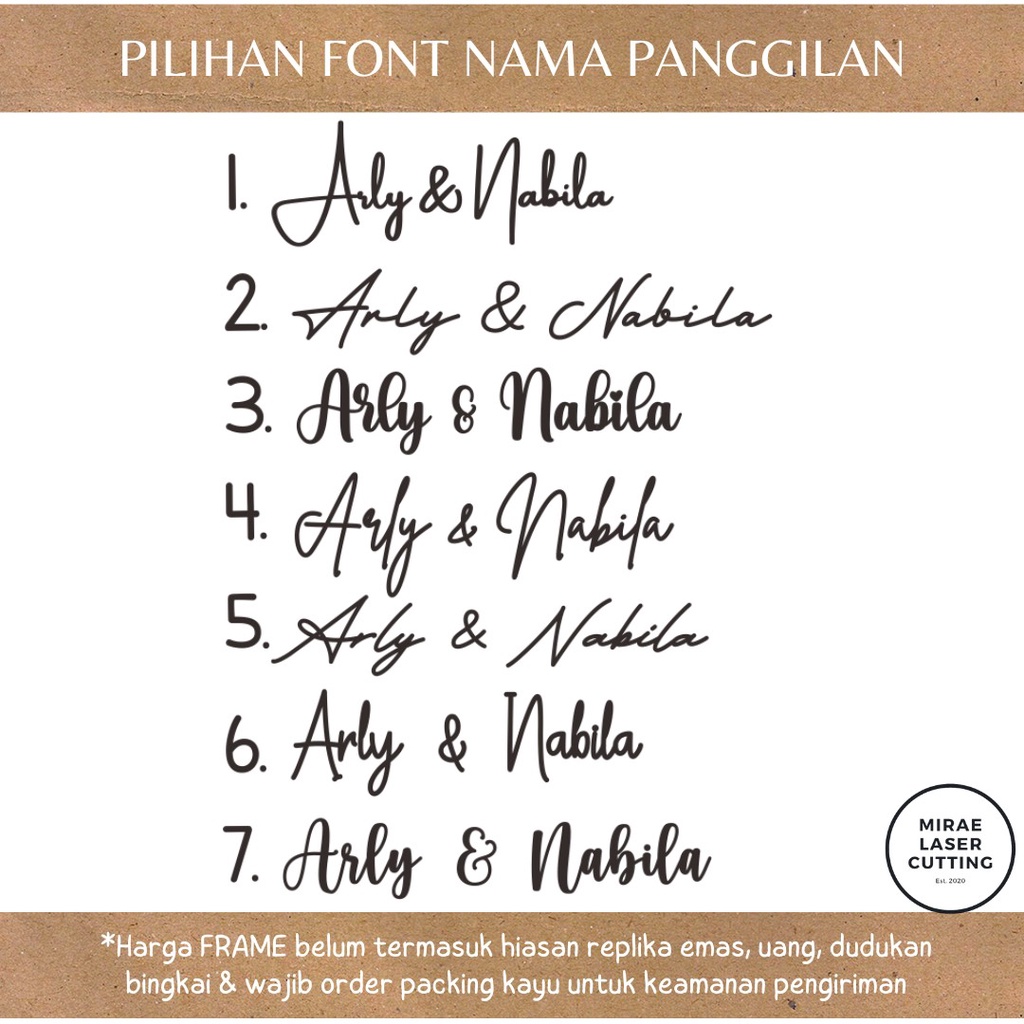 PILIHAN FONT NAMA PANGGILAN
1. Arly & Nabila
2. Arly & Nabila
3. Arly & Nabila
4. Arly & Nabila
5. Arly & Nabila
6. Arly & Nabila
7. Arly & Nabila
MIRAE
LASER
CUTTING
Est. 2020
*Harga FRAME belum termasuk hiasan replika emas, uang, dudukan
bingkai & wajib order packing kayu untuk keamanan pengiriman